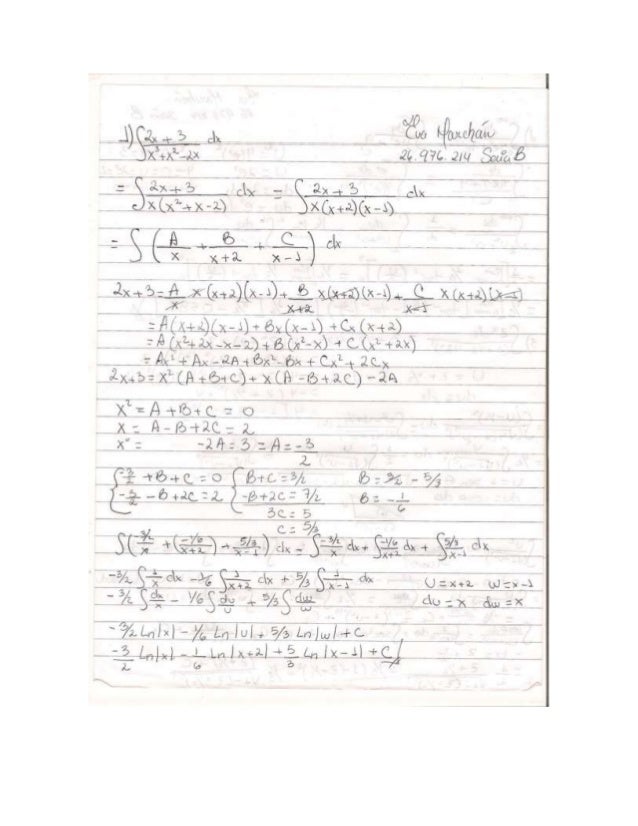 Eva Marchán
1) ∫ 2x + 3 / x³+x²-2x dx
26.976.214 Saia B
= ∫ 2x+3 / x(x²+x-2) dx = ∫ 2x+3 / x(x+2)(x-1) dx
= ∫ ( A/x + B/x+2 + C/x-1 ) dx
2x+3 = A/x x(x+2)(x-1) + B/x+2 x(x+2)(x-1) + C/x-1 x(x+2)(x-1)
= A(x+2)(x-1) + Bx(x-1) + Cx(x+2)
= A(x²+2x-x-2) + B(x²-x) + C(x²+2x)
= Ax² + Ax - 2A + Bx² - Bx + Cx² + 2Cx
2x+3 = x²(A+B+C) + x(A-B+2C) - 2A
x² = A + B + C = 0
x = A - B + 2C = 2
x° = -2A = 3 = A = -3/2
{ -3/2 + B + C = 0 { B+C = 3/2 B = 3/2 - 5/3
-3/2 - B + 2C = 2 -B+2C = 7/2 B = -1/6
3C = 5
C = 5/3
∫ ( -3/2/x + (-1/6/x+2) + 5/3/x-1 ) dx = ∫ -3/2/x dx + ∫ -1/6/x+2 dx + ∫ 5/3/x-1 dx
-3/2 ∫ 1/x dx - 1/6 ∫ 1/x+2 dx + 5/3 ∫ 1/x-1 dx U = x+2 W = x-1
-3/2 ∫ dx/x - 1/6 ∫ du/u + 5/3 ∫ dw/w du = x dw = x
-3/2 Ln|x| - 1/6 Ln|u| + 5/3 Ln|w| + C
-3/2 Ln|x| - 1/6 Ln|x+2| + 5/3 Ln|x-1| + C